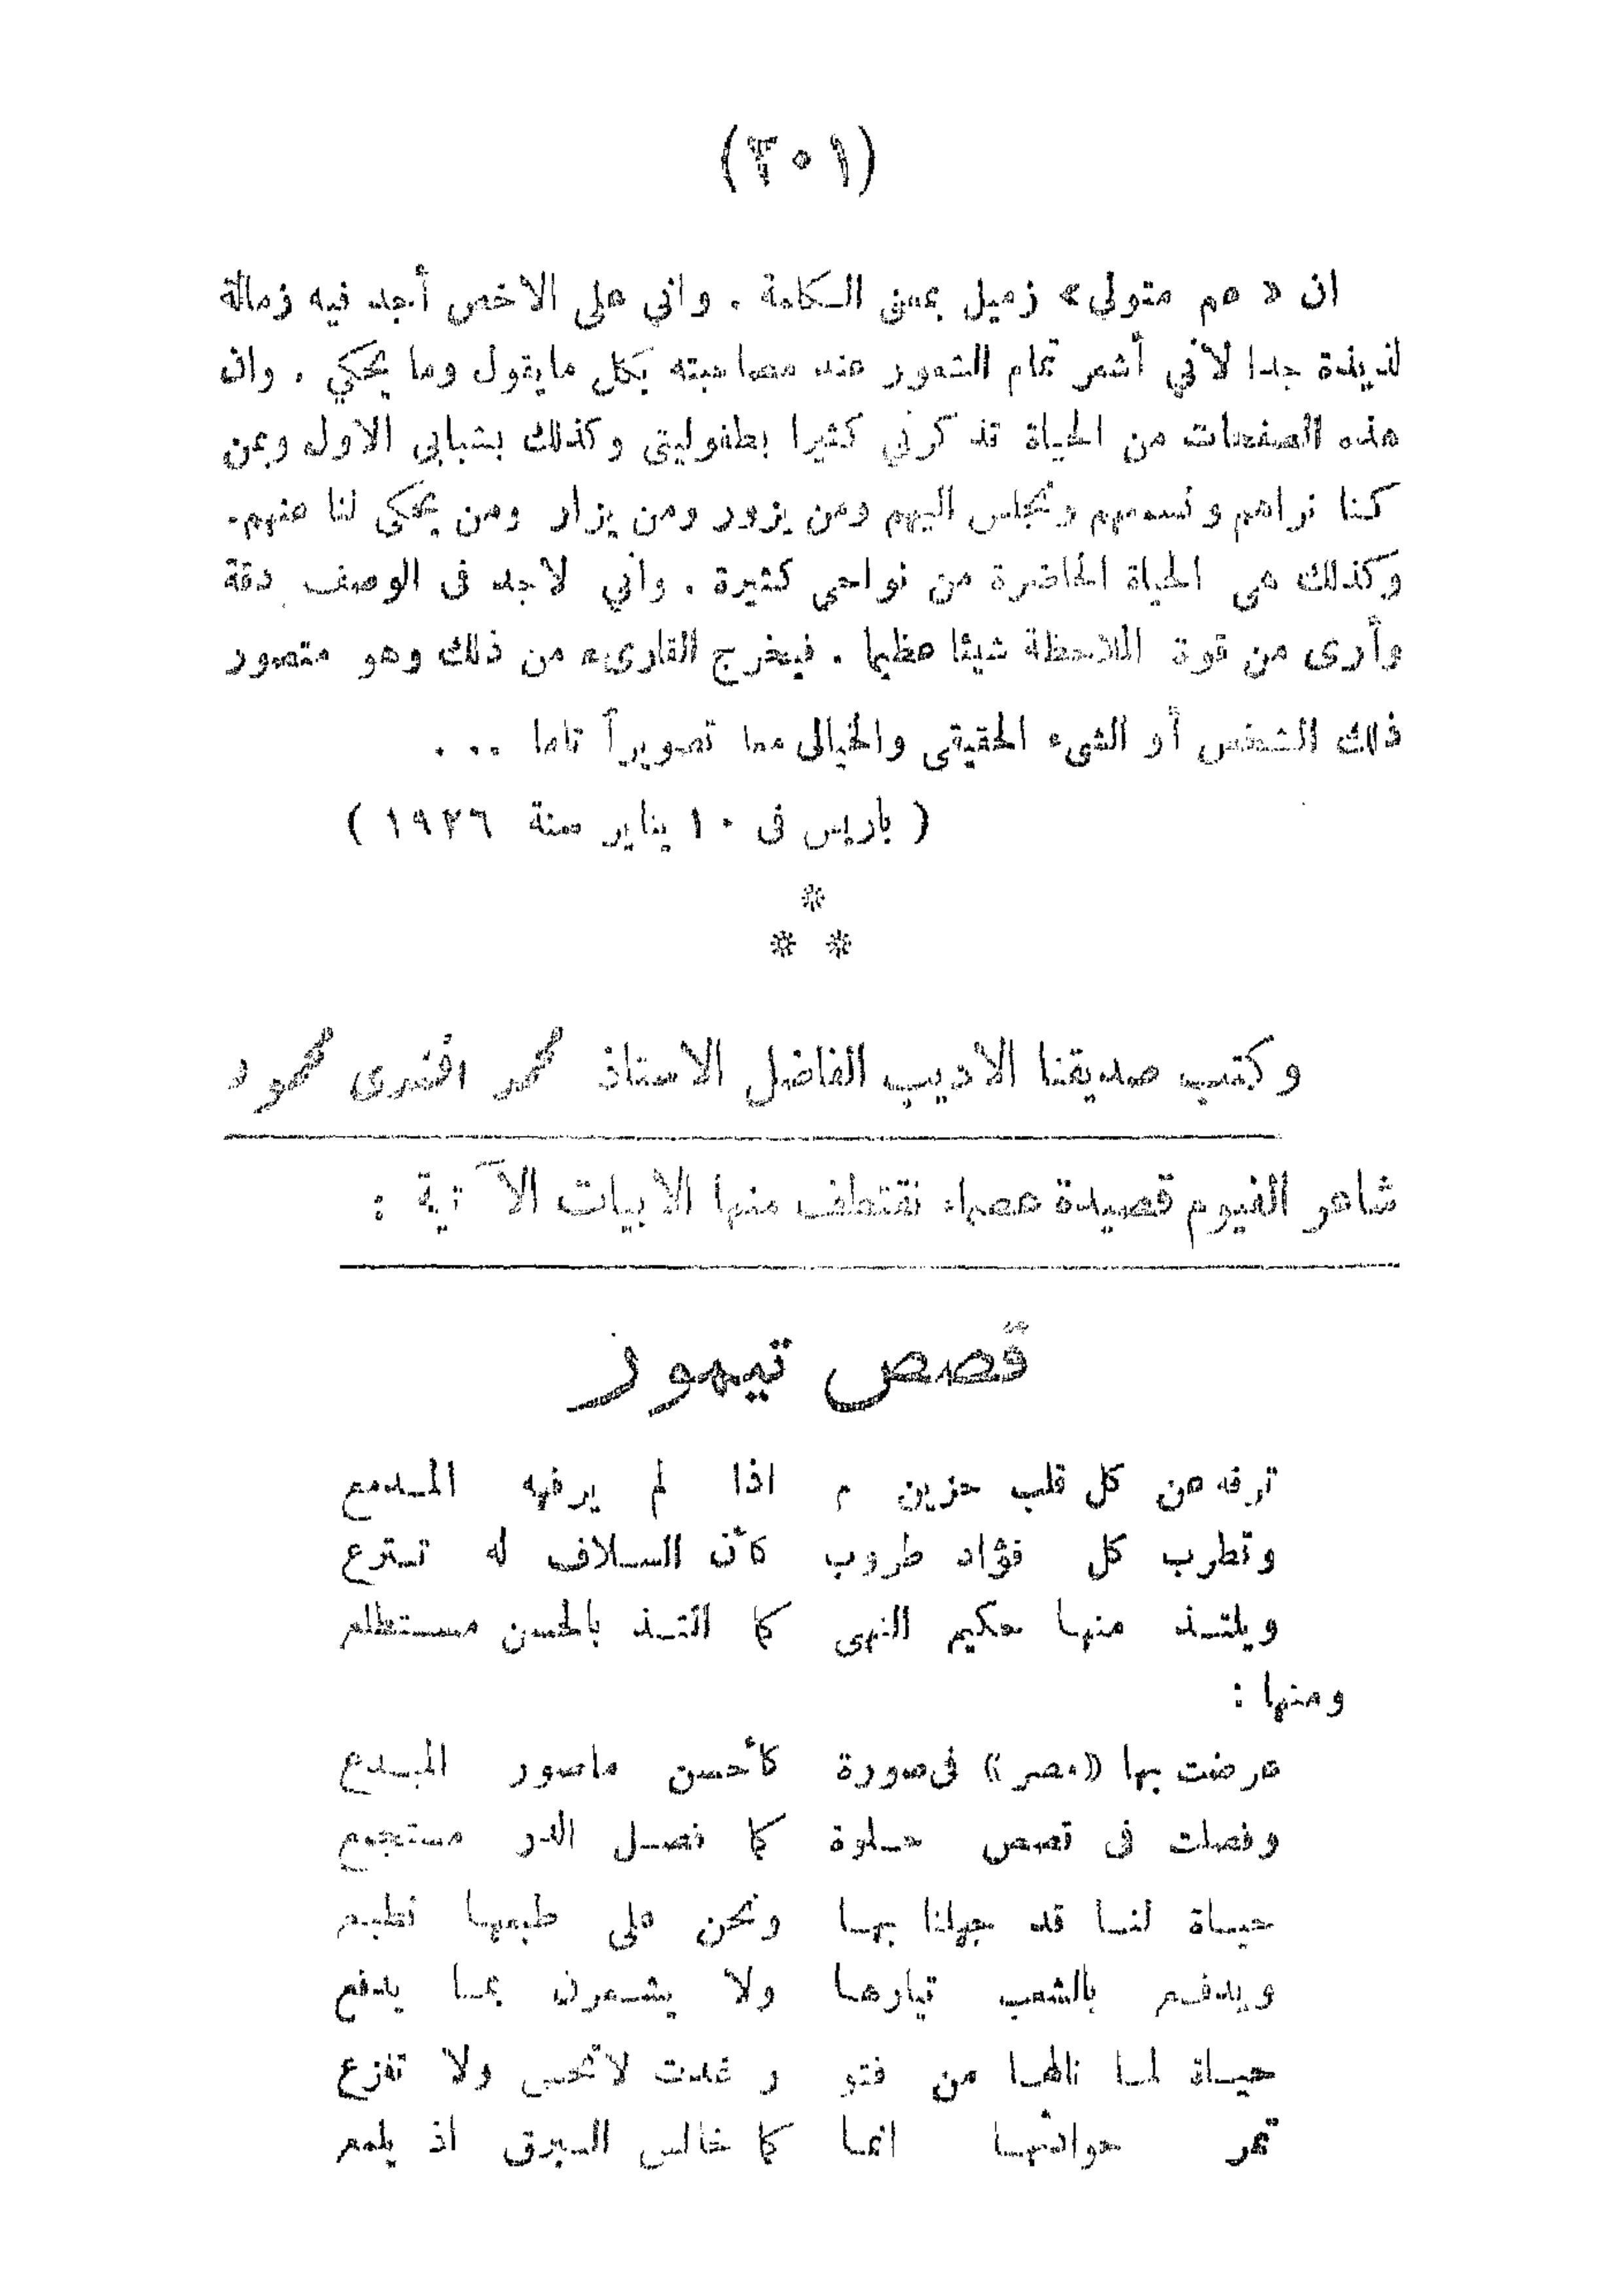 (٣٠١)
ان « عم متولي» زميل بمعنى الكلمة . واني على الاخص أجد فيه زمالة
لذيذة جدا لأني أشعر تمام الشعور عند مصاحبته بكل مايقول وما يحكي . وان
هذه الصفحات من الحياة تذكرني كثيرا بطفوليتى وكذلك بشبابى الاول وبمن
كنا نراهم ونسمعهم ونجلس اليهم ومن يزور ومن يزار ومن يحكى لنا عنهم.
وكذلك هى الحياة الحاضرة من نواحي كثيرة . واني لاجد فى الوصف دقة
وأرى من قوة الملاحظة شيئا عظيما . فيخرج القارىء من ذلك وهو متصور
ذلك الشخص أو الشىء الحقيقى والخيالى معا تصويراً تاما ...
( باريس فى ١٠ يناير سنة ١٩٢٦ )
*
* *
وكتب صديقنا الاديب الفاضل الاستاذ محمد افندى محمود
شاعر الفيوم قصيدة عصماء نقتطف منها الابيات الآتية :
قصص تيمور
ترفه عن كل قلب حزين م اذا لم يرفهه المدمع
وتطرب كل فؤاد طروب كأن السلاف له تترع
ويلتذ منها حكيم النهى كما التذ بالحسن مستطلع
ومنها :
عرضت بها «مصر» فى صورة كأحسن ماصور المبدع
وفصلت فى قصص حلوة كما فصل الدر مستجمع
حياة لنا قد جهلنا بها ونحن على طبعها نطبع
ويدفع بالشعب تيارها ولا يشعرن بما يدفع
حياة لما نالها من فتو ر غدت لاتحس ولا تفزع
تمر حوادثها انما كما خالس البرق اذ يلمع